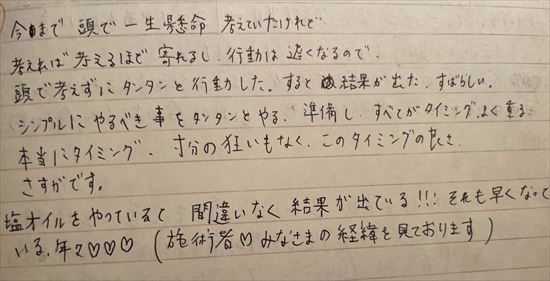 今まで 頭で一生懸命 考えていたけれど
考えれば考えるほど 寄れるし、行動は遅くなるので、
頭で考えずにタンタンと行動した。すると結果が出た。すばらしい。
シンプルに やるべき事をタンタンとやる。準備し、すべてがタイミングよく重る
本当にタイミング、寸分の狂いもなく、このタイミングの良さ
さすがです。
塩オイルをやっていると 間違いなく 結果が出ている!!! それも早くなって
いる。年々♡♡♡ (施術者♡みなさまの経緯を見ております)